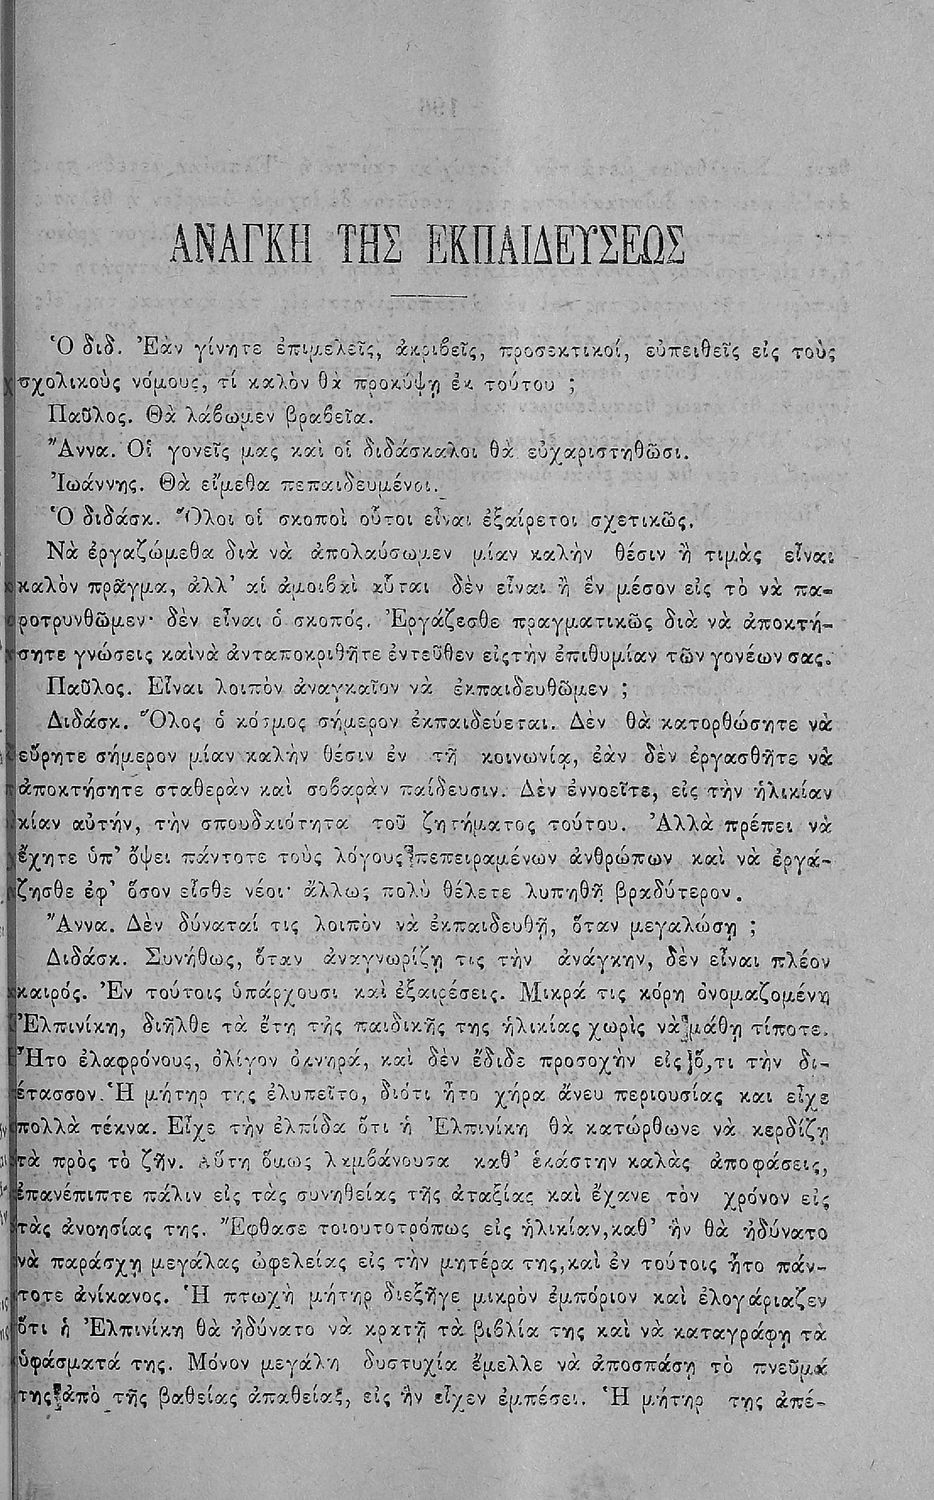 ΑΝΑΓΚΗ ΤΗΣ ΕΚΠΑΙΔΕΥΣΕΩΣ
Ὁ διδ. Ἐὰν γίνητε ἐπιμελεῖς, ἀκριβεῖς, προσεκτικοί, εὐπειθεῖς εἰς τοὺς
σχολικοὺς νόμους, τί καλὸν θὰ προκύψῃ ἐκ τούτου ;
Παῦλος. Θὰ λάβωμεν βραβεῖα.
Ἄννα. Οἱ γονεῖς μας καὶ οἱ διδάσκαλοι θὰ εὐχαριστηθῶσι.
Ἰωάννης. Θὰ εἴμεθα πεπαιδευμένοι.
Ὁ διδάσκ. Ὅλοι οἱ σκοποὶ οὗτοι εἶναι ἐξαίρετοι σχετικῶς.
Νὰ ἐργαζώμεθα διὰ νὰ ἀπολαύσωμεν μίαν καλὴν θέσιν ἢ τιμὰς εἶναι
καλὸν πρᾶγμα, ἀλλ' αἱ ἀμοιβαὶ αὗται δὲν εἶναι ἢ ἓν μέσον εἰς τὸ νὰ πα-
ροτρυνθῶμεν· δὲν εἶναι ὁ σκοπός. Ἐργάζεσθε πραγματικῶς διὰ νὰ ἀποκτή-
σητε γνώσεις καὶνὰ ἀνταποκριθῆτε ἐντεῦθεν εἰςτὴν ἐπιθυμίαν τῶν γονέων σας.
Παῦλος. Εἶναι λοιπὸν ἀναγκαῖον νὰ ἐκπαιδευθῶμεν ;
Διδάσκ. Ὅλος ὁ κόσμος σήμερον ἐκπαιδεύεται. Δὲν θὰ κατορθώσητε νὰ
εὕρητε σήμερον μίαν καλὴν θέσιν ἐν τῇ κοινωνίᾳ, ἐὰν δὲν ἐργασθῆτε νὰ
ἀποκτήσητε σταθερὰν καὶ σοβαρὰν παίδευσιν. Δὲν ἐννοεῖτε, εἰς τὴν ἡλικίαν
κίαν αὐτήν, τὴν σπουδαιότητα τοῦ ζητήματος τούτου. Ἀλλὰ πρέπει νὰ
ἔχητε ὑπ' ὄψει πάντοτε τοὺς λόγους πεπειραμένων ἀνθρώπων καὶ νὰ ἐργά-
ζησθε ἐφ' ὅσον εἶσθε νέοι· ἄλλως πολὺ θέλετε λυπηθῆ βραδύτερον.
Ἄννα. Δὲν δύναταί τις λοιπὸν νὰ ἐκπαιδευθῇ, ὅταν μεγαλώσῃ ;
Διδάσκ. Συνήθως, ὅταν ἀναγνωρίζῃ τις τὴν ἀνάγκην, δὲν εἶναι πλέον
καιρός. Ἐν τούτοις ὑπάρχουσι καὶ ἐξαιρέσεις. Μικρά τις κόρη ὀνομαζομένη
Ἐλπινίκη, διῆλθε τὰ ἔτη τῆς παιδικῆς της ἡλικίας χωρὶς νὰ μάθῃ τίποτε.
Ἦτο ἐλαφρόνους, ὀλίγον ὀκνηρά, καὶ δὲν ἔδιδε προσοχὴν εἰς ὅ,τι τὴν δι-
έτασσον. Ἡ μήτηρ της ἐλυπεῖτο, διότι ἦτο χήρα ἄνευ περιουσίας και εἶχε
πολλὰ τέκνα. Εἶχε τὴν ἐλπίδα ὅτι ἡ Ἐλπινίκη θὰ κατώρθωνε νὰ κερδίζῃ
τὰ πρὸς τὸ ζῆν. Αὕτη ὅμως λαμβάνουσα καθ' ἑκάστην καλὰς ἀποφάσεις,
ἐπανέπιπτε πάλιν εἰς τὰς συνηθείας τῆς ἀταξίας καὶ ἔχανε τὸν χρόνον εἰς
τὰς ἀνοησίας της. Ἔφθασε τοιουτοτρόπως εἰς ἡλικίαν,καθ' ἣν θὰ ἠδύνατο
νὰ παράσχῃ μεγάλας ὠφελείας εἰς τὴν μητέρα της,καὶ ἐν τούτοις ἦτο πάν-
τοτε ἀνίκανος. Ἡ πτωχὴ μήτηρ διεξῆγε μικρὸν ἐμπόριον καὶ ἐλογάριαζεν
ὅτι ἡ Ἐλπινίκη θὰ ἠδύνατο νὰ κρατῇ τὰ βιβλία της καὶ νὰ καταγράφῃ τὰ
ὑφάσματά της. Μόνον μεγάλη δυστυχία ἔμελλε νὰ ἀποσπάσῃ τὸ πνεῦμά
της ἀπὸ τῆς βαθείας ἀπαθείας, εἰς ἣν εἶχεν ἐμπέσει. Ἡ μήτηρ της ἀπέ-